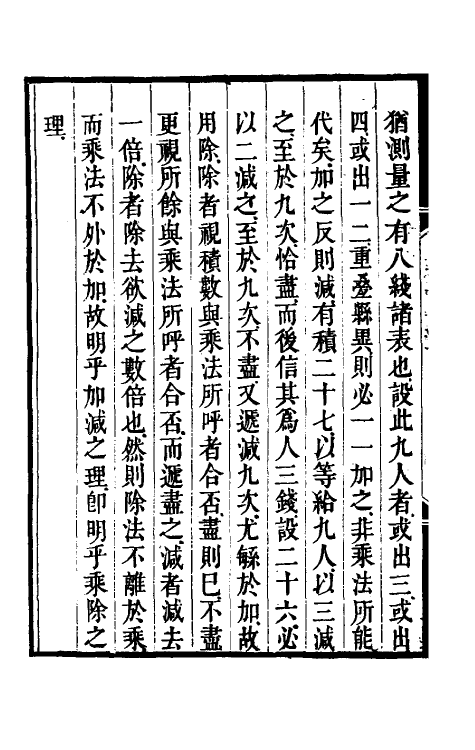 猶測量之有八綫諸表也設此九人者或出三或出
四或出一二重疊縣異則必一一加之非乘法所能
代矣加之反則減有積二十七以等給九人以三減
之至於九次恰盡而後信其爲人三錢設二十六必
以二減之至於九次不盡又遞減九次尤緐於加故
用除除者視積數與乘法所呼者合否盡則巳不盡
更視所餘與乘法所呼者合否而遞盡之減者減去
一倍除者除去欲減之數倍也然則除法不離於乘
而乘法不外於加故明乎加減之理卽明乎乘除之
理